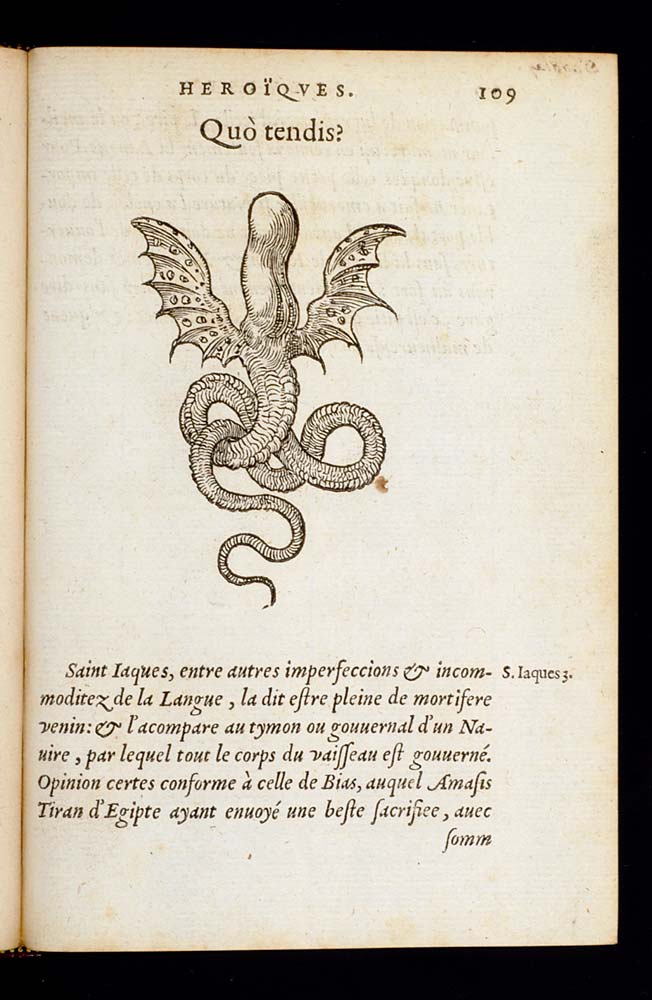 HEROÏQVES. 109
Quò tendis?
Saint Iaques, entre autres imperfeccions & incom- S. Iaques 3.
moditez de la Langue, la dit estre pleine de mortifere
venin: & l'acompare au tymon ou gouuernal d'un Na-
uire, par lequel tout le corps du vaisseau est gouuerné.
Opinion certes conforme à celle de Bias, auquel Amasis
Tiran d'Egipte ayant enuoyé une beste sacrifiee, auec
somm